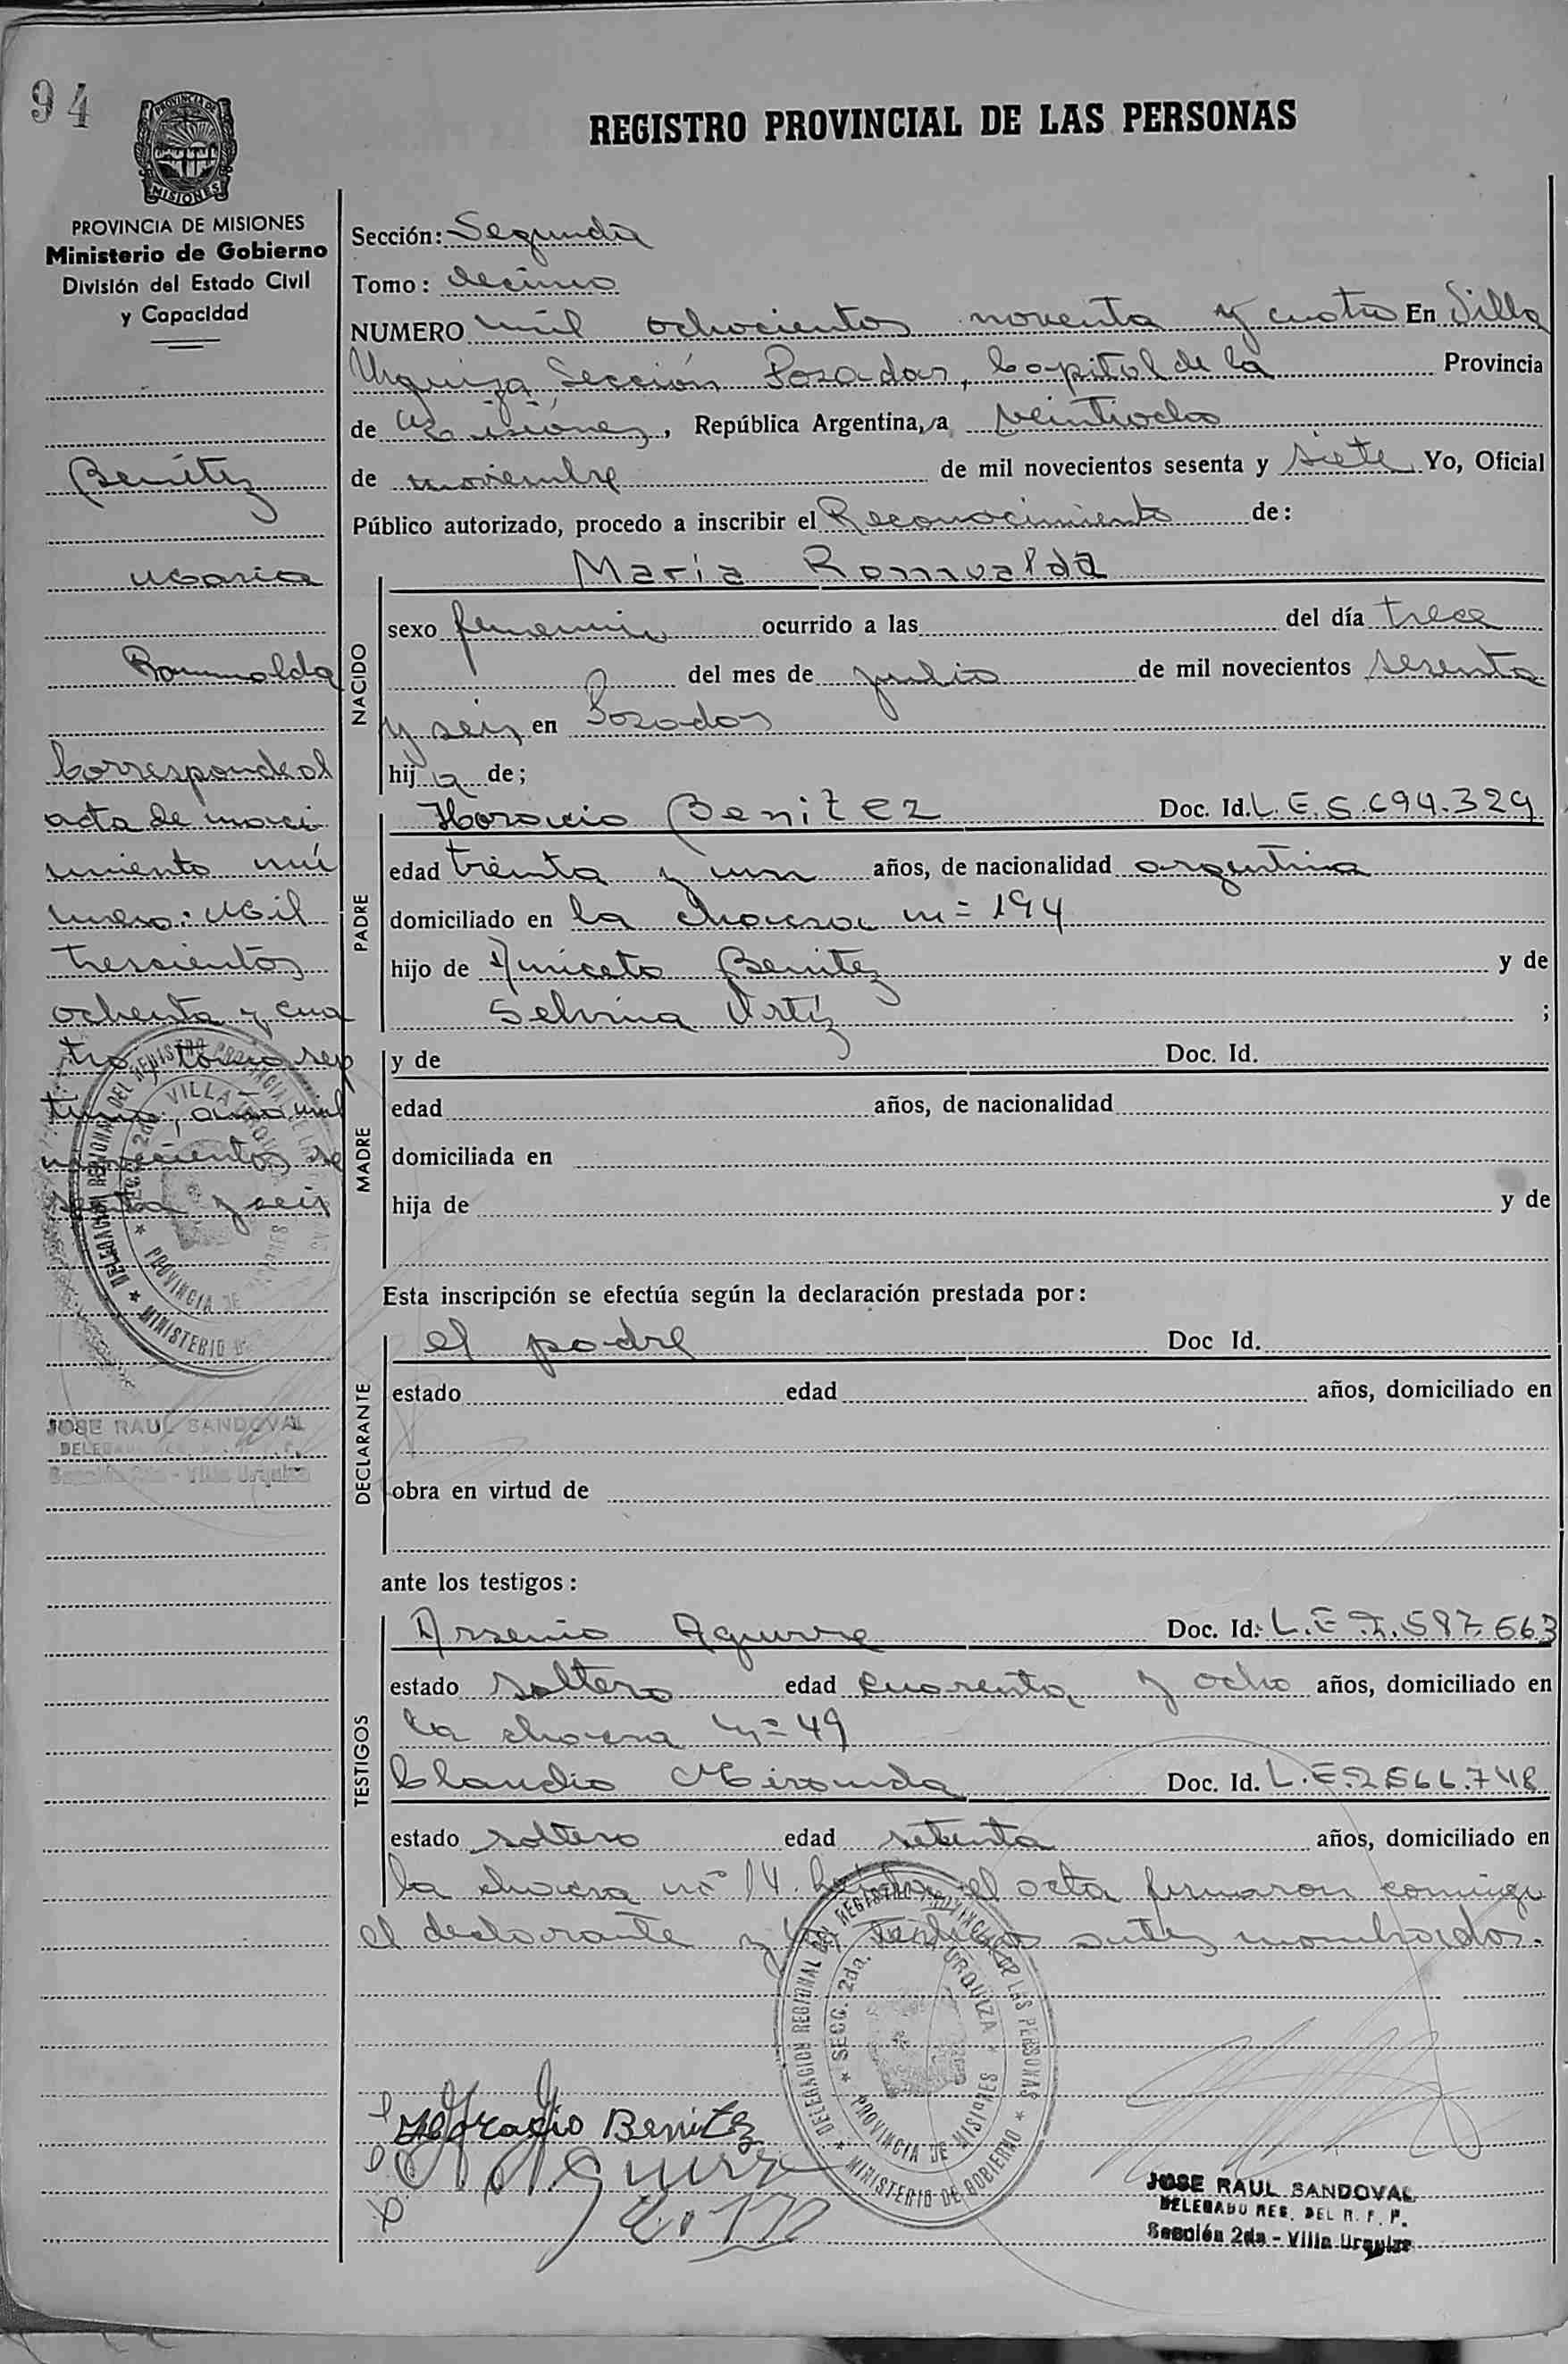 94
PROVINCIA DE MISIONES
PROVINCIA DE MISIONES
Ministerio de Gobierno
División del Estado Civil
y Capacidad
Benítez
Maria
Romualda
Corresponde al
acta de naci
miento nú
mero: Mil
trescientos
ochenta y cua
tro, tomo sep
timo, año mil
novecientos se
senta y seis
DELEGACION REGIONAL DEL REGISTRO PROVINCIAL DE LAS
SECC. 2da. VILLA URQUIZA
PROVINCIA DE MISIONES
MINISTERIO D
JOSE RAUL SANDOVAL
Sección 2da - Villa Urquiza
REGISTRO PROVINCIAL DE LAS PERSONAS
Sección: Segunda
Tomo: decimo
NUMERO mil ochocientos noventa y cuatro En Villa
Urquiza, Sección Posadas, Capital de la Provincia
de Misiones, República Argentina, a veintiocho
de noviembre de mil novecientos sesenta y siete Yo, Oficial
Público autorizado, procedo a inscribir el Reconocimiento de:
Maria Romualda
NACIDO
sexo femenino ocurrido a las del día trece
del mes de julio de mil novecientos sesenta
y seis en Posadas
hij a de;
PADRE
Horacio Benitez Doc. Id. L.E.
edad treinta y un años, de nacionalidad argentina
domiciliado en la chacra nº 194
hijo de Aniceto Benitez y de
Selvina Ortiz ;
MADRE
y de Doc. Id.
edad años, de nacionalidad
domiciliada en
hija de y de
Esta inscripción se efectúa según la declaración prestada por:
DECLARANTE
el padre Doc Id.
estado edad años, domiciliado en
obra en virtud de
ante los testigos:
TESTIGOS
Arsenio Aguirre Doc. Id: L.E
estado soltero edad cuarenta y ocho años, domiciliado en
la chacra nº 49
Claudio Miranda Doc. Id. L.E.2566.748
estado soltero edad setenta años, domiciliado en
la chacra nº 14. el acta firmaron conmigo
el declarante y los testigos antes nombrados.
DELEGACION REGIONAL DEL REGISTRO PROVINCIAL DE LAS PERSONAS
SECC. 2da. URQUIZA
PROVINCIA DE MISIONES
MINISTERIO DE GOBIERNO
Horacio Benitez
JOSE RAUL SANDOVAL
DELEGADO RES. DEL R. P. P.
Sección 2da - Villa Urquiza